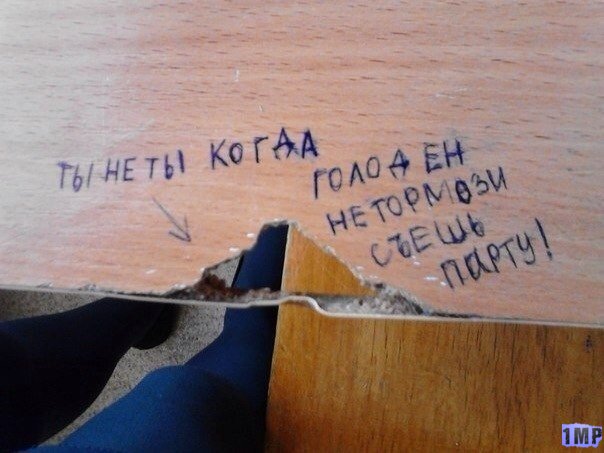 ТЫ НЕ ТЫ КОГДА
ГОЛОДЕН
НЕ ТОРМОЗИ
СЪЕШЬ
ПАРТУ!
1MP